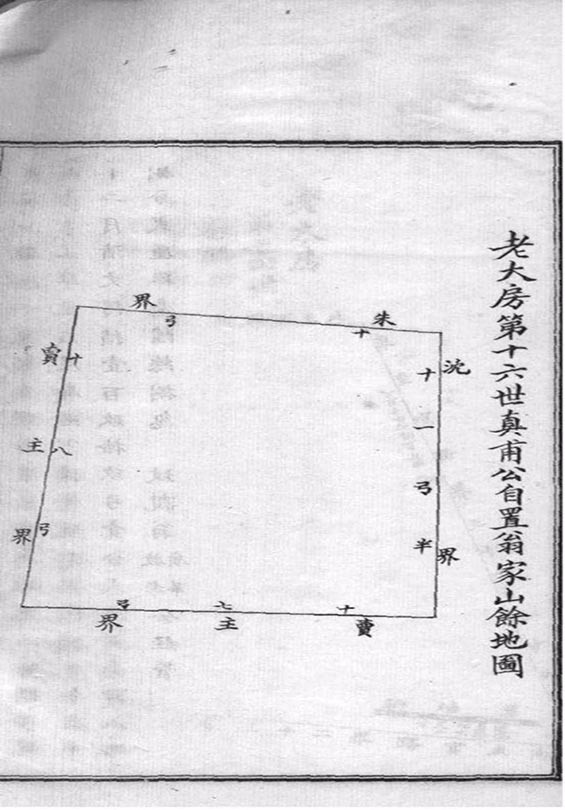 老大房第十六世真甫公自置翁家山餘地圖
朱界
十弓
沈界
十一弓半
賣主界
十八弓
賣主界
十七弓